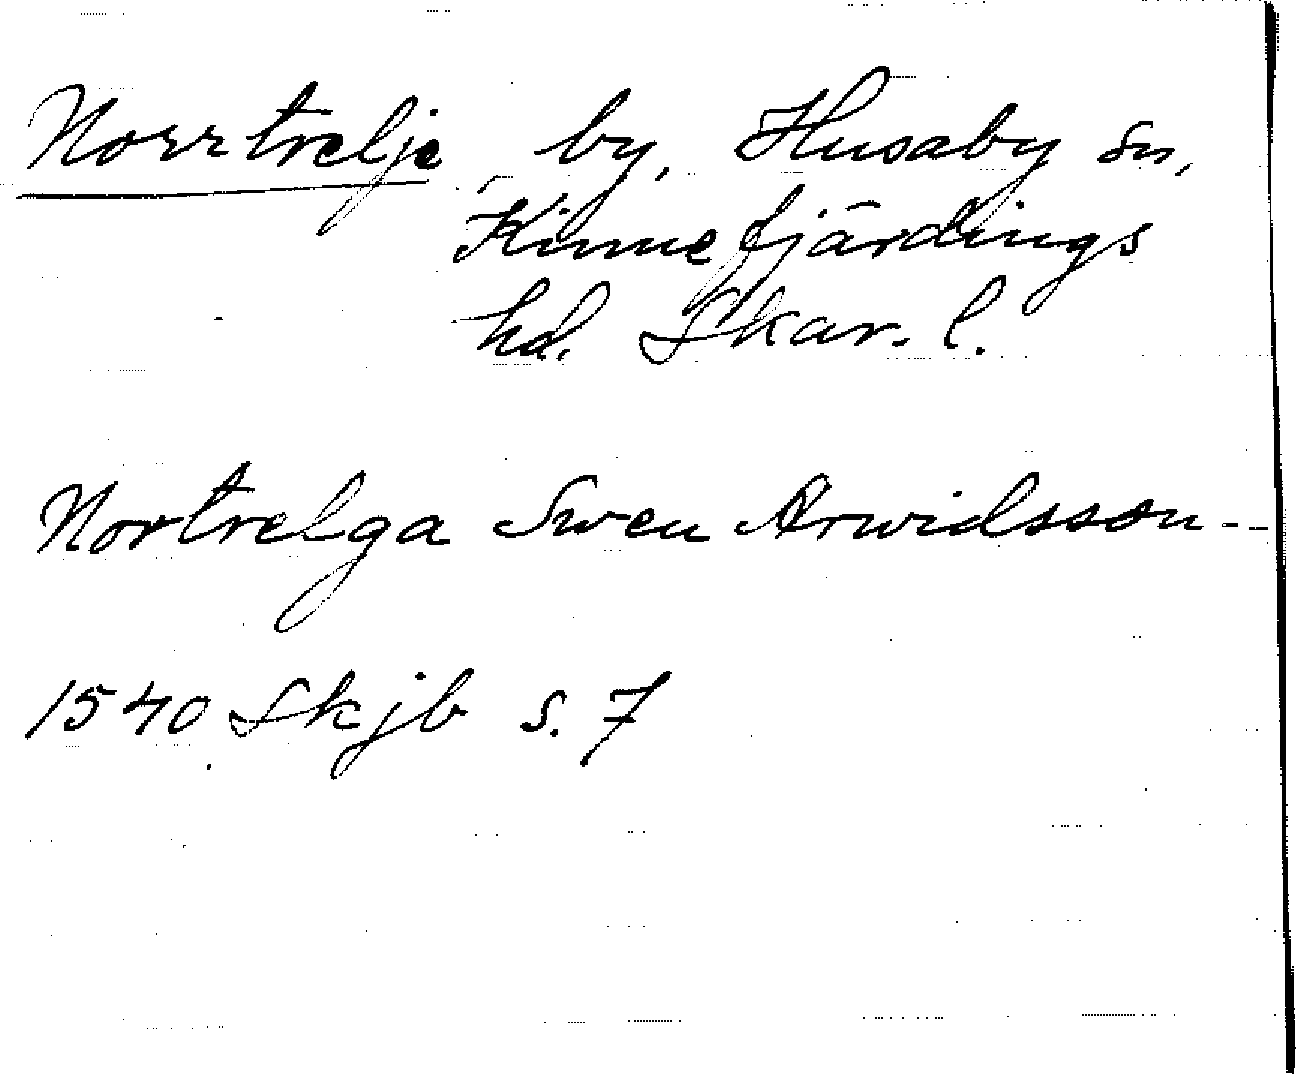 Norrtrelje, by, Husaby sn,
Kinnefjärdings
hd. Skar. l.
Nortrelga Swen Arwidsson --
1540 Skjb s. 7